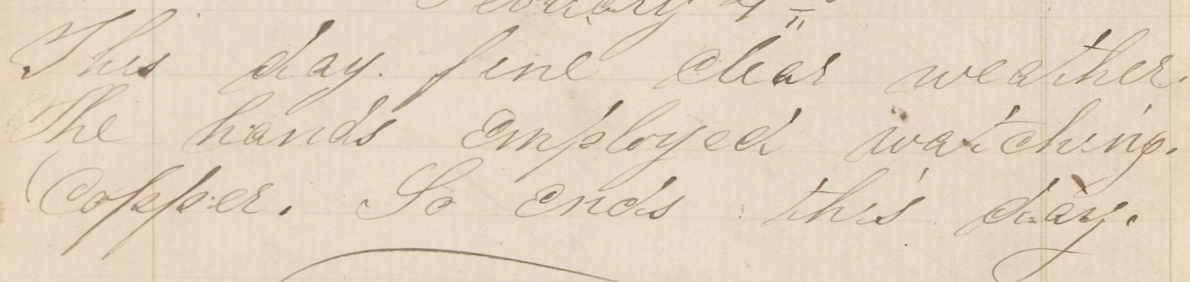 February 4
This day. fine clear weather.
The hands employed watching.
Copper. So ends this day.